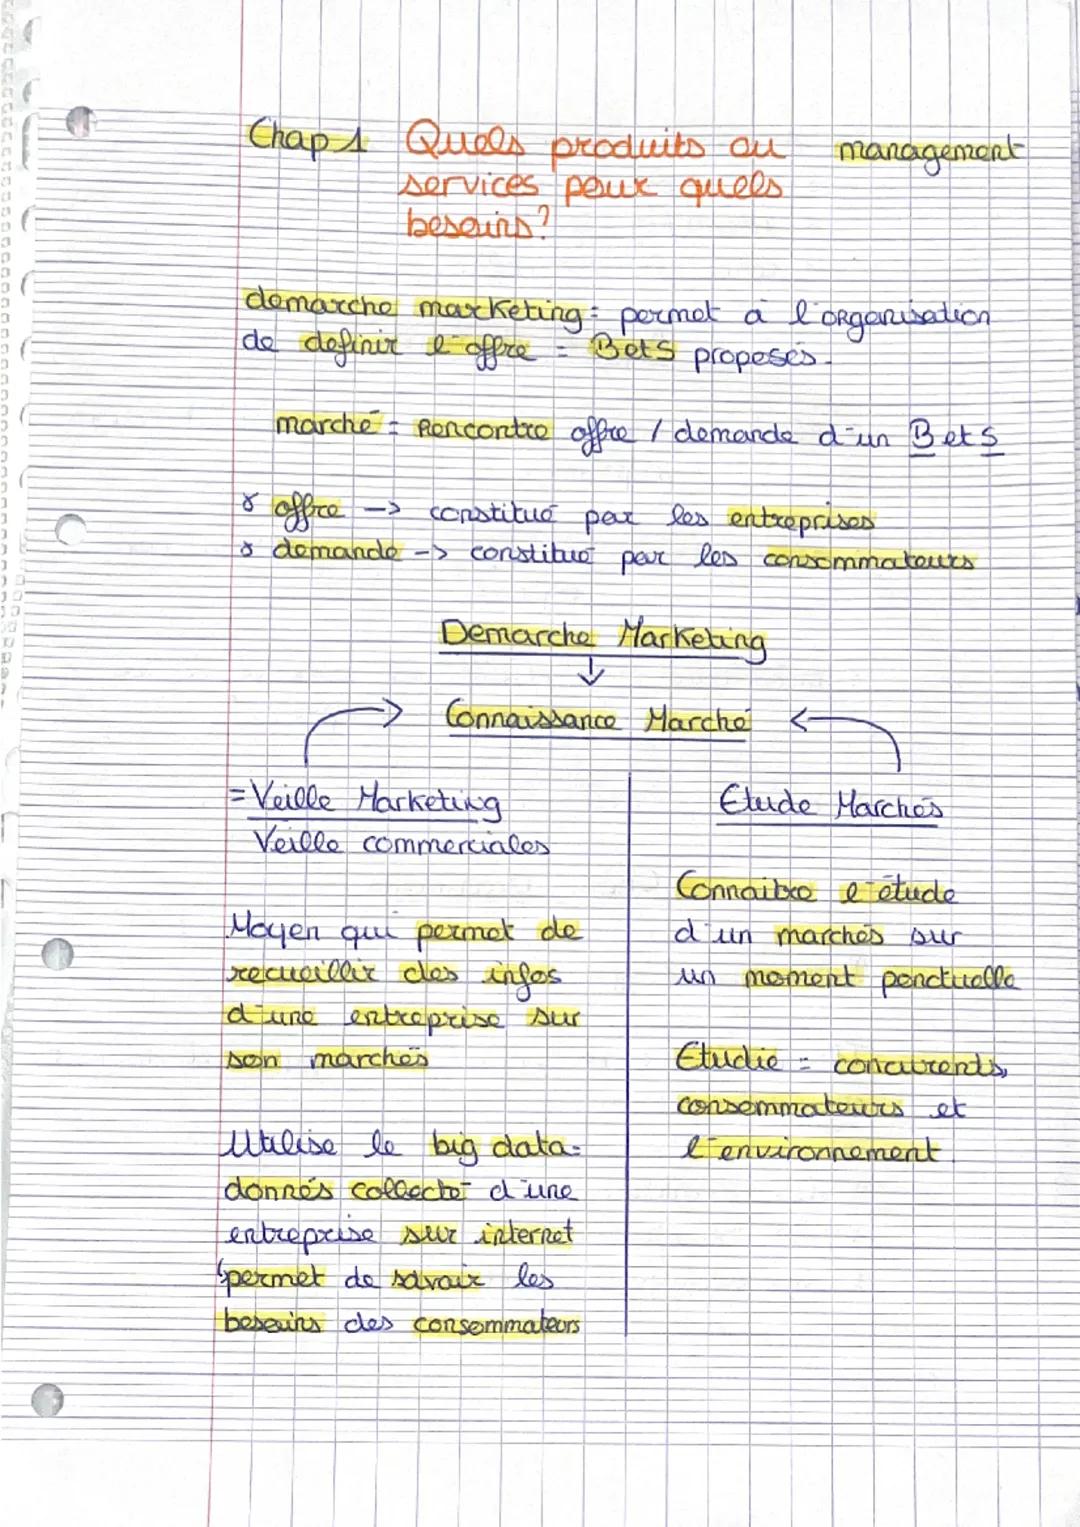 Chap 1 Quels produits ou management
services pour quels
besoins?
demarche marketing = permet à l'organisation
de definir l'offre = BetS proposés.
marché = Rencontre offre / demande d'un B et S
offre -> constitué par les entreprises
demande -> constitué par les consommateurs
Demarche Marketing
↓
Connaissance Marché
= Veille Marketing
Veille commerciales
Moyen qui permet de
recueillir des infos
d'une entreprise sur
son marchés
Utilise le big data =
donnés collecté d'une
entreprise sur internet
permet de savoir les
besoins des consommateurs
Etude Marchés
Connaitre l'étude
d'un marchés sur
un moment ponctuelle
Etudie = concurents,
consommateurs et
l'environnement.